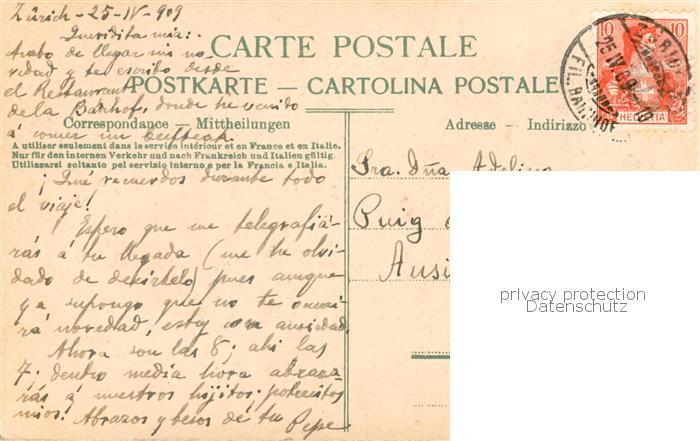 Zürich - 25 - IV - 909
Queridita mía:
Acabo de llegar sin no-
vedad y te escribo desde
el Restaurant
de la Bahnhof, donde he venido
á comer un beefteak
CARTE POSTALE
POSTKARTE — CARTOLINA POSTALE
Correspondance — Mittheilungen
A utiliser seulement dans le service intérieur et en France et en Italie.
Nur für den internen Verkehr und nach Frankreich und Italien gültig.
Utilizzarsi soltanto pel servizio interno e per la Francia e Italia.
¡Qué recuerdos durante todo
el viaje!
Espero que me telegrafia-
rás á tu llegada (me he olvi-
dado de decírtelo) pues aunque
ya supongo que no te ocurri-
rá novedad, estoy con ansiedad.
Ahora són las 8; ahi las
7; dentro media hora abraza-
rás á nuestros hijitos; pobrecitos
mios! Abrazos y besos de tu Pepe
Adresse — Indirizzo
Sra. Dña Adelina
Puig
Ausi
10 10
HELVETIA
25 IV 09
privacy protection
Datenschutz